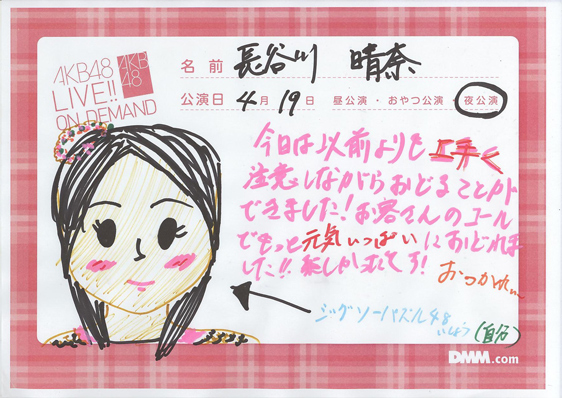 AKB48
LIVE!!
ON DEMAND
AKB
48
名前 長谷川 晴奈
公演日 4月19日 昼公演・おやつ公演 夜公演
今日は以前よりも上手く
注意しながらおどることが
できました!お客さんのコール
でもっと元気いっぱいにおどれま
した!!
おつかれ
ジグソーパズル48
いしょう
(自分)
DMM.com